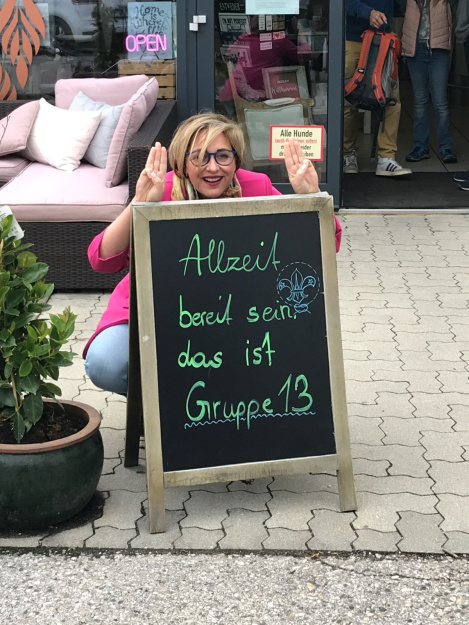 OPEN
Alle Hunde
Allzeit
bereit sein.
das ist
Gruppe 13